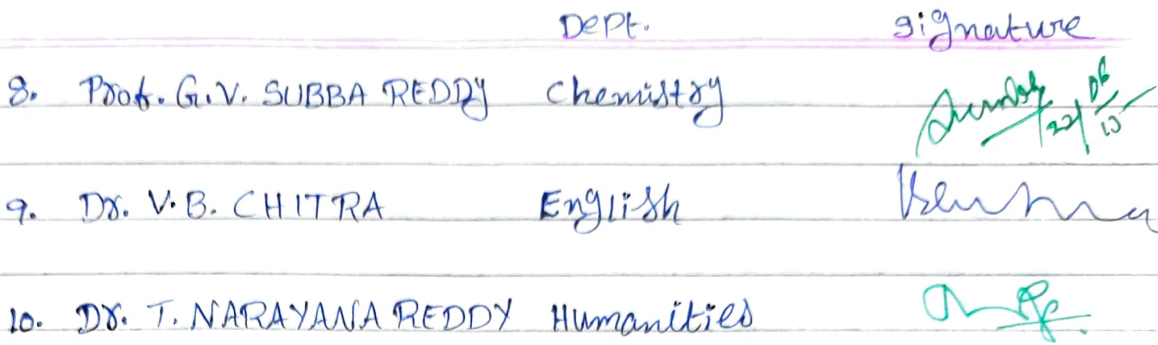 Dept. Signature
8. Prof. G.V. SUBBA REDDY Chemistry
9. Dr. V.B. CHITRA English
10. Dr. T. NARAYANA REDDY Humanities